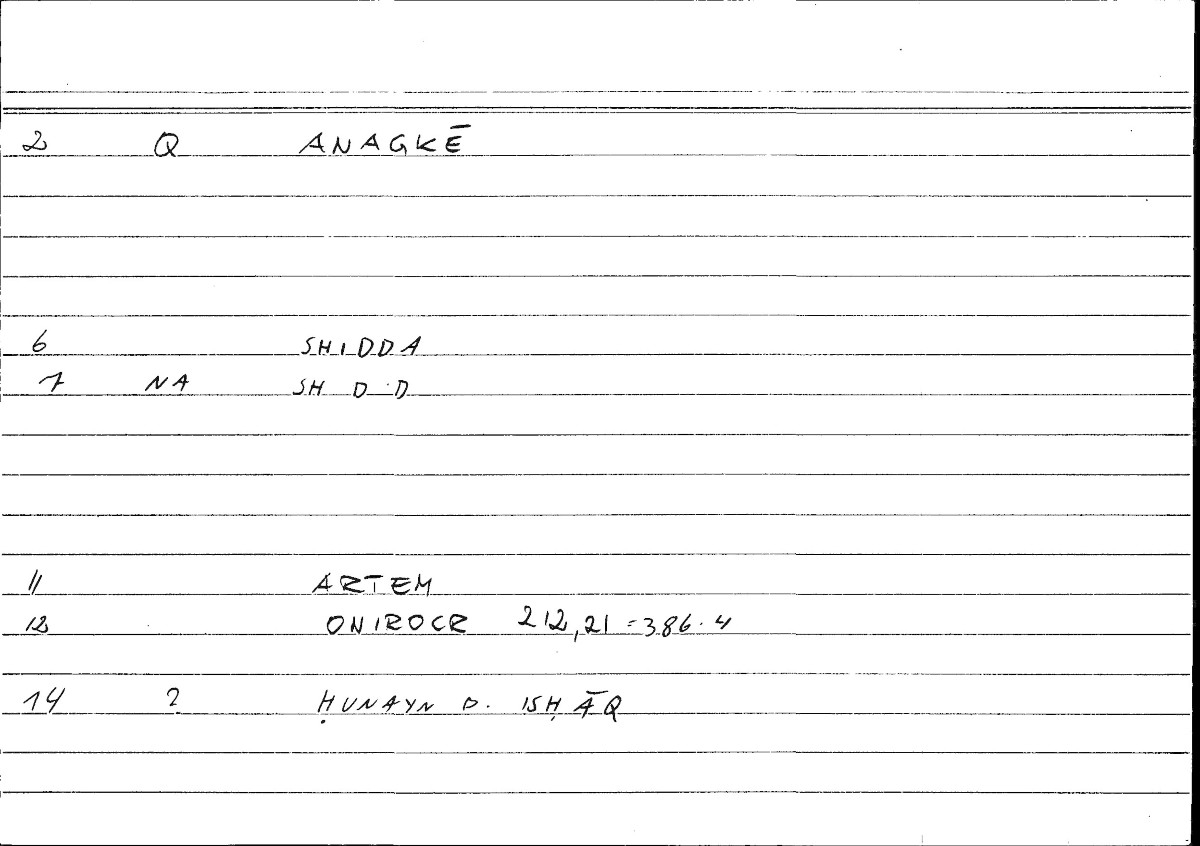 2 Q ANAGKĒ
6 SHIDDA
7 NA SH D D
11 ARTEM
12 ONIROCR 212,21=386.4
14 2 ḤUNAYN D. ISḤĀQ